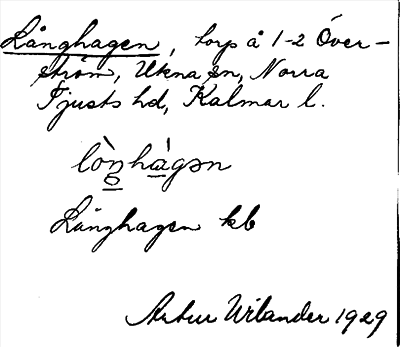 Långhagen, torp å 1-2 Över-
ström, Ukna sn, Norra
Tjusts hd, Kalmar l.
lòŋhàgən
Långhagen kb
Artur Wilander 1929